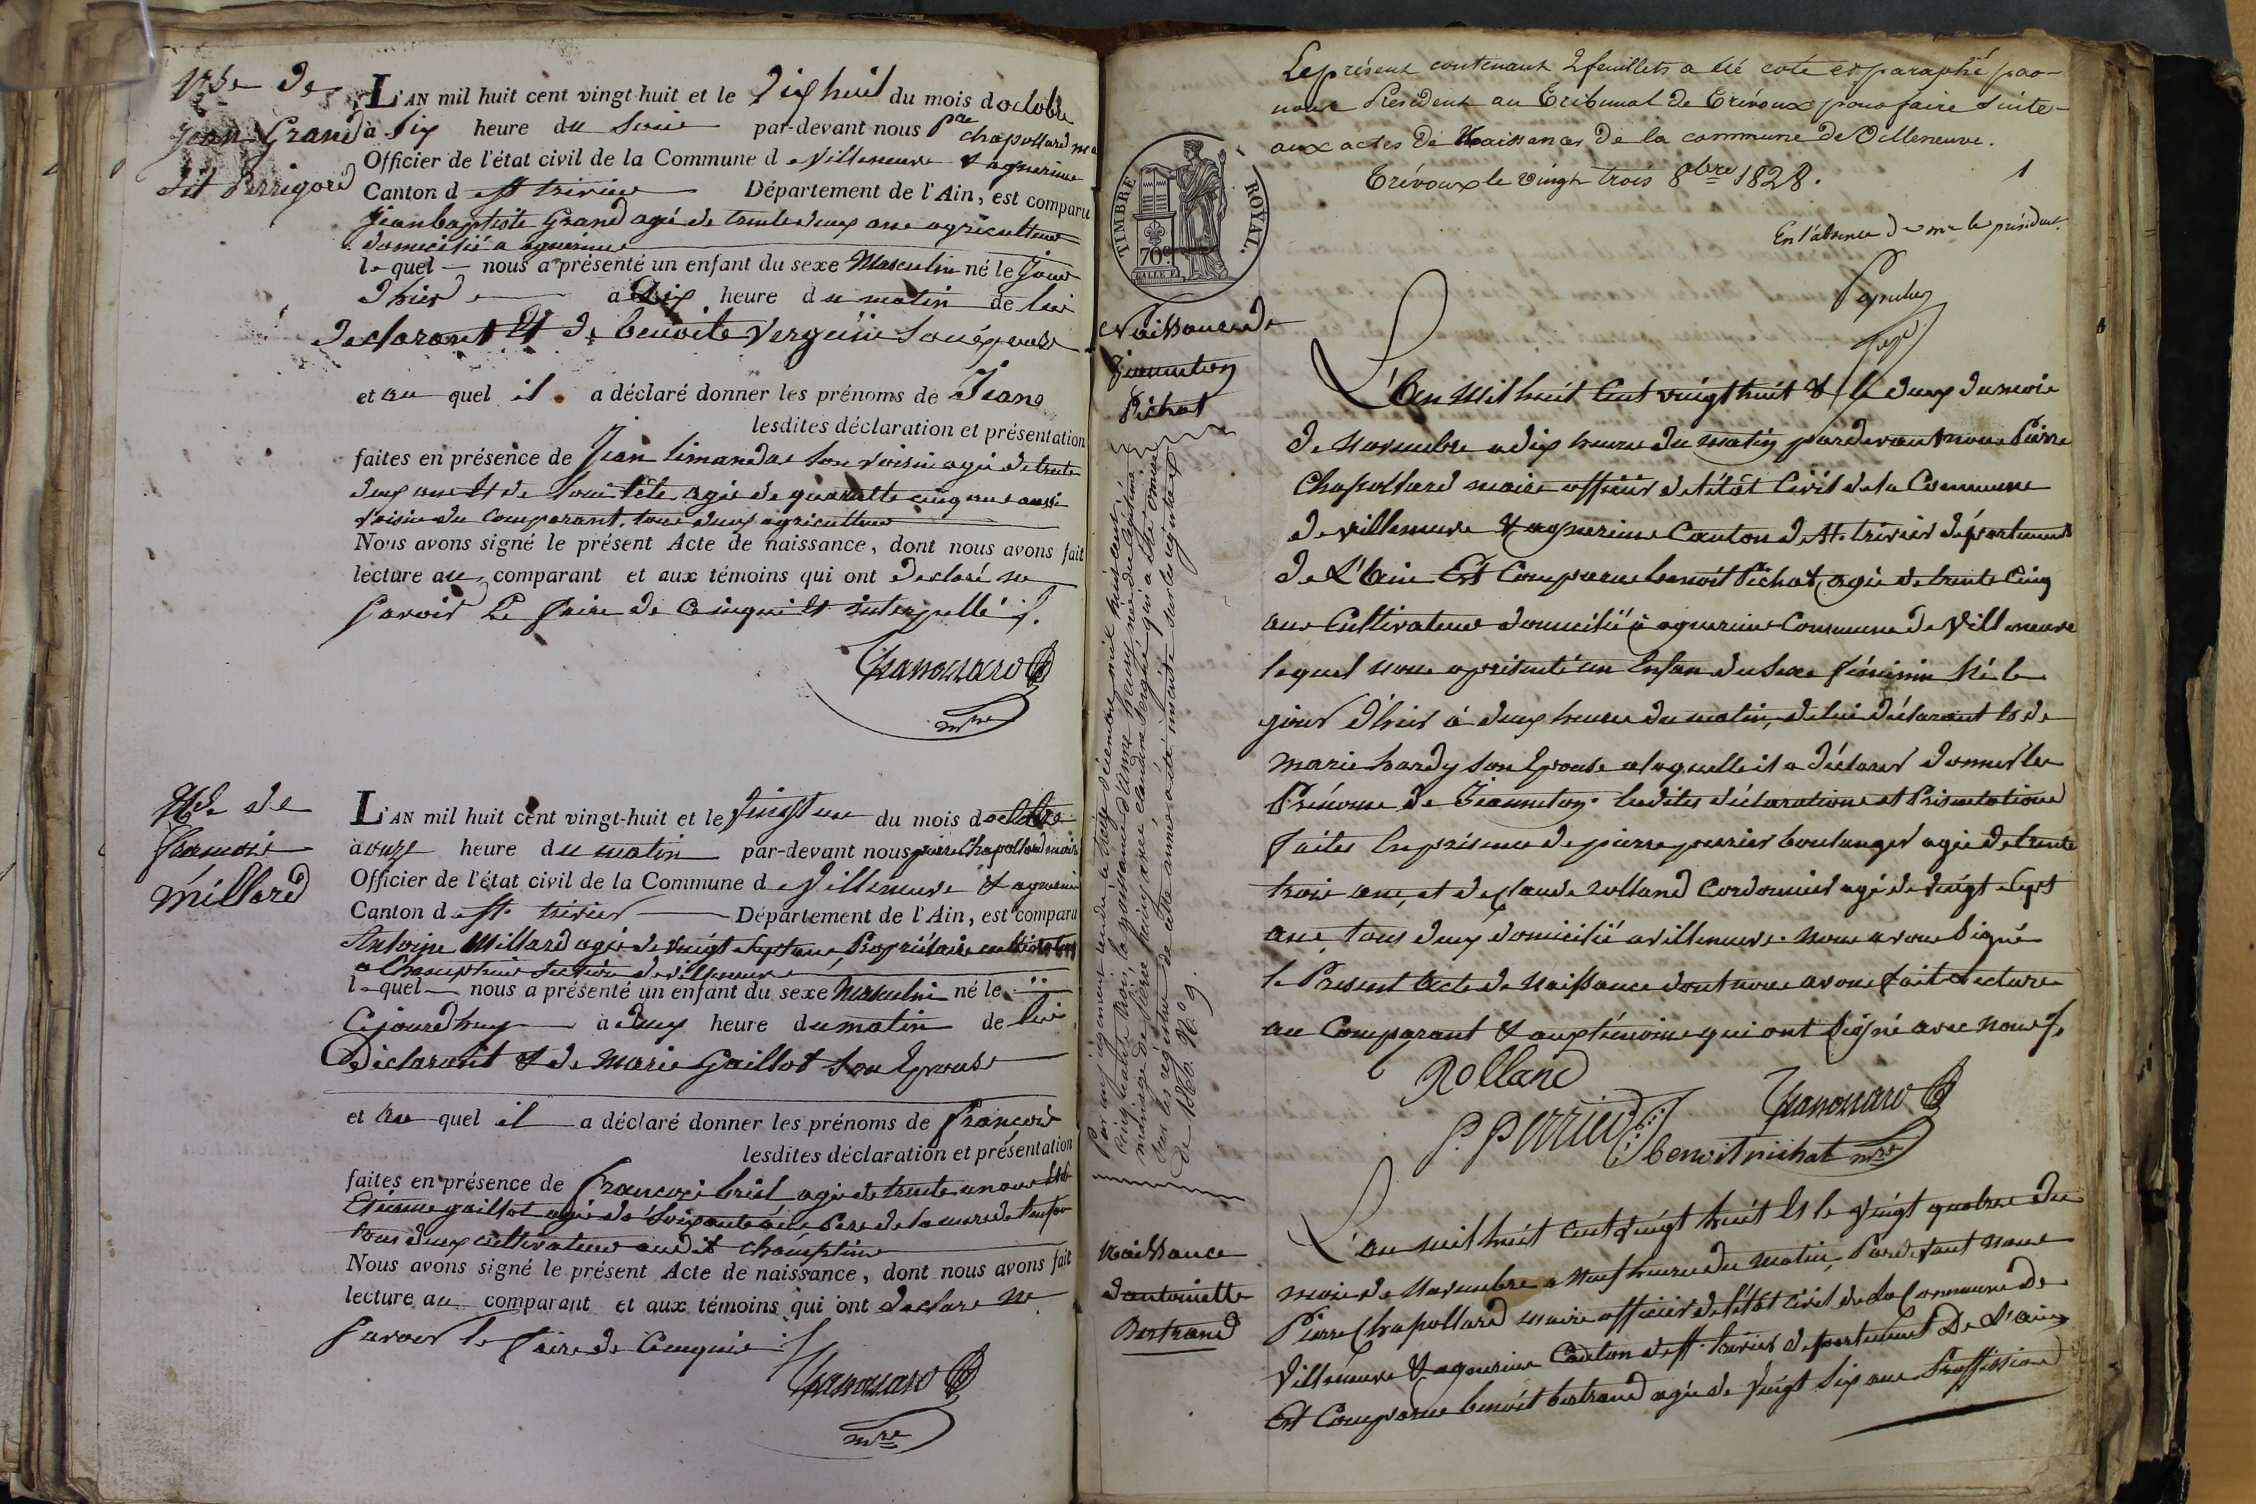 Nce de
Jean Grand
dit Perrigord
L'AN mil huit cent vingt-huit et le Dix huit du mois doctobre
à Six heure du Soir par-devant nous Pre chapollard me
Officier de l'état civil de la Commune de Villeneuve & agnerime
Canton de St trivier Département de l'Ain, est comparu
Jean baptiste Grand agé de trente deux ans agriculteur
domicilié a agnerime
lequel nous a présenté un enfant du sexe Masculin né le Jour
d'hier a Dix heure du matin de lui
declarant Et de benoite Verguin Son épouse
et au quel il a déclaré donner les prénoms de Jean
lesdites déclaration et présentation
faites en présence de Jean limandas Son voisin agé de trente
deux ans Et de agé de quarante cinq ans aussi
Voisin du comparant, tous deux agriculteurs
Nous avons signé le présent Acte de naissance, dont nous avons fait
lecture au comparant et aux témoins qui ont declaré ne
Savoir Le faire de ce enquis Et interpellé
mre
Nce de
francois
Millard
L'AN mil huit cent vingt-huit et le Vingt un du mois doctobre
à onze heure du matin par-devant nous pierre Chapollard maire
Officier de l'état civil de la Commune de Villeneuve & agnerime
Canton de St. trivier Département de l'Ain, est comparu
Antoine Millard agé de vingt Sept ans Propriétaire cultivateur
a section de villeneuve
lequel nous a présenté un enfant du sexe Masculin né le
Cejourdhuy à deux heure du matin de lui
Déclarant & de Marie Gaillot Son Epouse
et au quel il a déclaré donner les prénoms de francois
lesdites déclaration et présentation
faites en présence de francois agé de trente un ans Et
Etienne gaillot agé de Soixante ans Pere de la mere de l'enfan
tous deux cultivateurs audit
Nous avons signé le présent Acte de naissance, dont nous avons fait
lecture au comparant et aux témoins qui ont declare ne
Savoir le faire de Cenquis
mre
Le présent contenant 2 feuillets a été coté et paraphé par
nous Président au Tribunal de Trévoux pour faire Suite
aux actes de Naissances de la commune de Villeneuve.
Trévoux le vingt trois 8bre 1828.
1
En l'absence de mr le président.
TIMBRE ROYAL.
70c.
Naissance de
Jeanneton
Pichat
L'An Mil huit Cent vingt huit & le deux du mois
de Novembre a dix heures du matin pardevant nous Pierre
Chapollard maire officier de l'état Civil de la Commune
de villeneuve & agnerime Canton de St. trivier département
de L'Ain Est Comparu benoit Pichat, agé de trente Cinq
ans Cultivateur domicilié à agnerime Commune de Villeneuve
lequel nous a présenté un Enfan du Sexe féminin Né le
jour d'hier à deux heures du matin, de lui déclarant Et de
marie hardy Son Epouse a laquelle il a déclarer donner les
Prénoms de Jeanneton. lesdites déclarations et Présentations
faites En présence de pierre perrier boulanger agé de trente
trois ans, et de Claude rolland Cordonnier agé de vingt Sept
ans, tous deux domicilié a villeneuve. Nous avons Signé
le Present Acte de Naissance dont nous avons fait Lecture
au Comparant & aux témoins qui ont Signé avec Nous
Rolland
P. Perrier
benoit pichat mre
Par un jugement rendu à Trévoux le décembre mil huit cent
cinquante trois, la naissance d'Anne
mariage de Pierre avec claudine Sergue qui a été omis
sur les registres de cette année a été inscrite sur les registres
de 1853. N.o 9.
Naissance
dantoinette
Bertrand
L'an mil huit cent vingt huit Et le Vingt quatre du
mois de Novembre a Neuf heures du matin, Pardevant nous
Pierre Chapollard maire officier de l'état civil de la Commune de
Villeneuve & agnerime Canton de St. trivier département De L'ain
Est Comparu benoit bertrand agé de Vingt Six ans Proffession